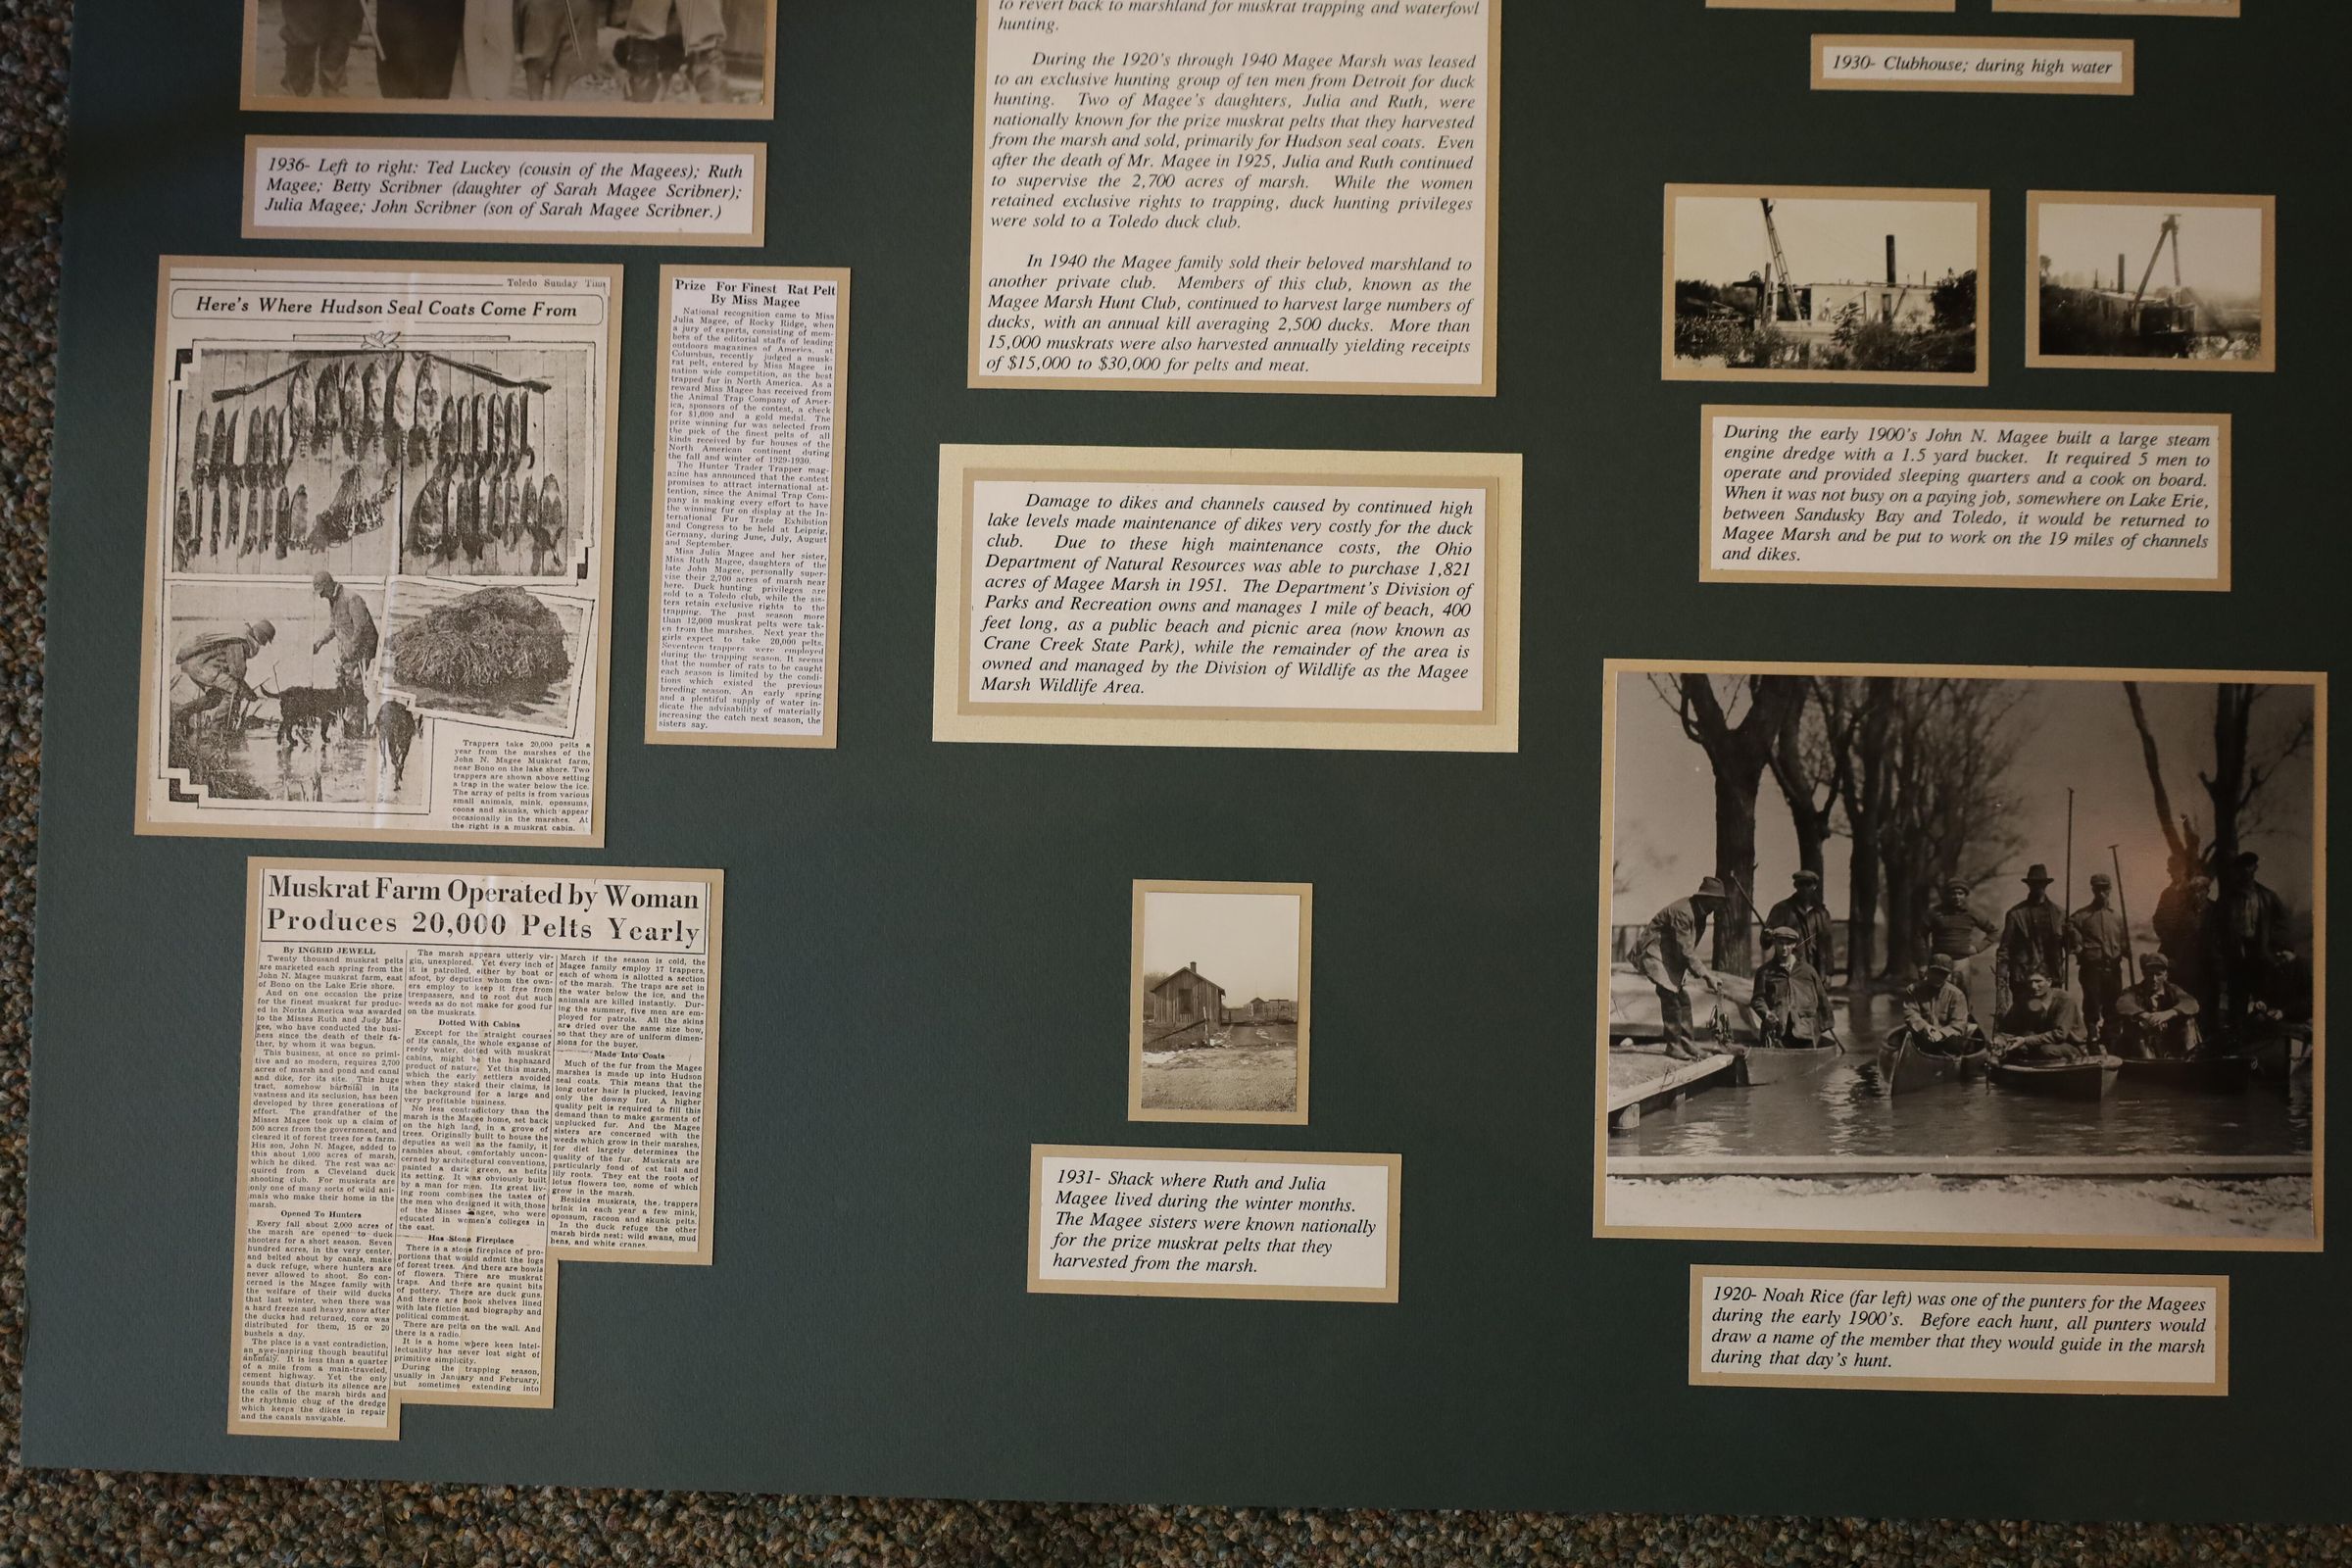 1936- Left to right: Ted Luckey (cousin of the Magees); Ruth
Magee; Betty Scribner (daughter of Sarah Magee Scribner);
Julia Magee; John Scribner (son of Sarah Magee Scribner.)
Toledo Sunday
Here's Where Hudson Seal Coats Come From
Trappers take 20,000 pelts a
year from the marshes of the
John N. Magee Muskrat farm,
near Bono on the lake shore. Two
trappers are shown above setting
a trap in the water below the ice.
The array of pelts is from various
small animals, mink, opossums,
coons and skunks, which appear
occasionally in the marshes. At
the right is a muskrat cabin.
Prize For Finest Rat Pelt
By Miss Magee
National recognition came to Miss
Julia Magee, of Rocky Ridge, when
a jury of experts, consisting of mem-
bers of the editorial staffs of leading
outdoors magazines of America, at
Columbus, recently judged a musk-
rat pelt, entered by Miss Magee in
nation wide competition, as the best
trapped fur in North America. As a
reward Miss Magee has received from
the Animal Trap Company of Amer-
ica, sponsors of the contest, a check
for $1,000 and a gold medal. The
prize winning fur was selected from
the pick of the finest pelts of all
kinds received by fur houses of the
North American continent during
the fall and winter of 1929-1930.
The Hunter Trader Trapper mag-
azine has announced that the contest
promises to attract international at-
tention, since the Animal Trap Com-
pany is making every effort to have
the winning fur on display at the In-
ternational Fur Trade Exhibition
and Congress to be held at Leipzig,
Germany, during June, July, August
and September.
Miss Julia Magee and her sister,
Miss Ruth Magee, daughters of the
late John Magee, personally super-
vise their 2,700 acres of marsh near
here. Duck hunting privileges are
sold to a Toledo club, while the sis-
ters retain exclusive rights to the
trapping. The past season more
than 12,000 muskrat pelts were tak-
en from the marshes. Next year the
girls expect to take 20,000 pelts.
Seventeen trappers were employed
during the trapping season. It seems
that the number of rats to be caught
each season is limited by the condi-
tions which existed the previous
breeding season. An early spring
and a plentiful supply of water in-
dicate the advisability of materially
increasing the catch next season, the
sisters say.
Muskrat Farm Operated by Woman
Produces 20,000 Pelts Yearly
By INGRID JEWELL
Twenty thousand muskrat pelts
are marketed each spring from the
John N. Magee muskrat farm, east
of Bono on the Lake Erie shore.
And on one occasion the prize
for the finest muskrat fur produc-
ed in North America was awarded
to the Misses Ruth and Judy Ma-
gee, who have conducted the busi-
ness since the death of their fa-
ther, by whom it was begun.
This business, at once so primi-
tive and so modern, requires 2,700
acres of marsh and pond and canal
and dike, for its site. This huge
tract, somehow baronial in its
vastness and its seclusion, has been
developed by three generations of
effort. The grandfather of the
Misses Magee took up a claim of
500 acres from the government, and
cleared it of forest trees for a farm.
His son, John N. Magee, added to
this about 1,000 acres of marsh,
which he diked. The rest was ac-
quired from a Cleveland duck
shooting club. For muskrats are
only one of many sorts of wild ani-
mals who make their home in the
marsh.
Opened To Hunters
Every fall about 2,000 acres of
the marsh are opened to duck
shooters for a short season. Seven
hundred acres, in the very center,
and belted about by canals, make
a duck refuge, where hunters are
never allowed to shoot. So con-
cerned is the Magee family with
the welfare of their wild ducks
that last winter, when there was
a hard freeze and heavy snow after
the ducks had returned, corn was
distributed for them, 15 or 20
bushels a day.
The place is a vast contradiction,
an awe-inspiring though beautiful
anomaly. It is less than a quarter
of a mile from a main-traveled,
cement highway. Yet the only
sounds that disturb its silence are
the calls of the marsh birds and
the rhythmic chug of the dredge
which keeps the dikes in repair
and the canals navigable.
The marsh appears utterly vir-
gin, unexplored. Yet every inch of
it is patrolled, either by boat or
afoot, by deputies whom the own-
ers employ to keep it free from
trespassers, and to root out such
weeds as do not make for good fur
on the muskrats.
Dotted With Cabins
Except for the straight courses
of its canals, the whole expanse of
reedy water, dotted with muskrat
cabins, might be the haphazard
product of nature. Yet this marsh,
which the early settlers avoided
when they staked their claims, is
the background for a large and
very profitable business.
No less contradictory than the
marsh is the Magee home, set back
on the high land, in a grove of
trees. Originally built to house the
deputies as well as the family, it
rambles about, comfortably uncon-
cerned by architectural conventions,
painted a dark green, as befits
its setting. It was obviously built
by a man for men. Its great liv-
ing room combines the tastes of
the men who designed it with those
of the Misses Magee, who were
educated in women's colleges in
the east.
Has Stone Fireplace
There is a stone fireplace of pro-
portions that would admit the logs
of forest trees. And there are bowls
of flowers. There are muskrat
traps. And there are quaint bits
of pottery. There are duck guns.
And there are book shelves lined
with late fiction and biography and
political comment.
There are pelts on the wall. And
there is a radio.
It is a home where keen intel-
lectuality has never lost sight of
primitive simplicity.
During the trapping season,
usually in January and February,
but sometimes extending into
March if the season is cold, the
Magee family employ 17 trappers,
each of whom is allotted a section
of the marsh. The traps are set in
the water below the ice, and the
animals are killed instantly. Dur-
ing the summer, five men are em-
ployed for patrols. All the skins
are dried over the same size bow,
so that they are of uniform dimen-
sions for the buyer.
Made Into Coats
Much of the fur from the Magee
marshes is made up into Hudson
seal coats. This means that the
long outer hair is plucked, leaving
only the downy fur. A higher
quality pelt is required to fill this
demand than to make garments of
unplucked fur. And the Magee
sisters are concerned with the
weeds which grow in their marshes,
for diet largely determines the
quality of the fur. Muskrats are
particularly fond of cat tail and
lily roots. They eat the roots of
lotus flowers too, some of which
grow in the marsh.
Besides muskrats, the trappers
brink in each year a few mink,
opossum, racoon and skunk pelts.
In the duck refuge the other
marsh birds nest: wild swans, mud
hens, and white cranes.
to revert back to marshland for muskrat trapping and waterfowl
hunting.
During the 1920's through 1940 Magee Marsh was leased
to an exclusive hunting group of ten men from Detroit for duck
hunting. Two of Magee's daughters, Julia and Ruth, were
nationally known for the prize muskrat pelts that they harvested
from the marsh and sold, primarily for Hudson seal coats. Even
after the death of Mr. Magee in 1925, Julia and Ruth continued
to supervise the 2,700 acres of marsh. While the women
retained exclusive rights to trapping, duck hunting privileges
were sold to a Toledo duck club.
In 1940 the Magee family sold their beloved marshland to
another private club. Members of this club, known as the
Magee Marsh Hunt Club, continued to harvest large numbers of
ducks, with an annual kill averaging 2,500 ducks. More than
15,000 muskrats were also harvested annually yielding receipts
of $15,000 to $30,000 for pelts and meat.
Damage to dikes and channels caused by continued high
lake levels made maintenance of dikes very costly for the duck
club. Due to these high maintenance costs, the Ohio
Department of Natural Resources was able to purchase 1,821
acres of Magee Marsh in 1951. The Department's Division of
Parks and Recreation owns and manages 1 mile of beach, 400
feet long, as a public beach and picnic area (now known as
Crane Creek State Park), while the remainder of the area is
owned and managed by the Division of Wildlife as the Magee
Marsh Wildlife Area.
1931- Shack where Ruth and Julia
Magee lived during the winter months.
The Magee sisters were known nationally
for the prize muskrat pelts that they
harvested from the marsh.
1930- Clubhouse; during high water
During the early 1900's John N. Magee built a large steam
engine dredge with a 1.5 yard bucket. It required 5 men to
operate and provided sleeping quarters and a cook on board.
When it was not busy on a paying job, somewhere on Lake Erie,
between Sandusky Bay and Toledo, it would be returned to
Magee Marsh and be put to work on the 19 miles of channels
and dikes.
1920- Noah Rice (far left) was one of the punters for the Magees
during the early 1900's. Before each hunt, all punters would
draw a name of the member that they would guide in the marsh
during that day's hunt.